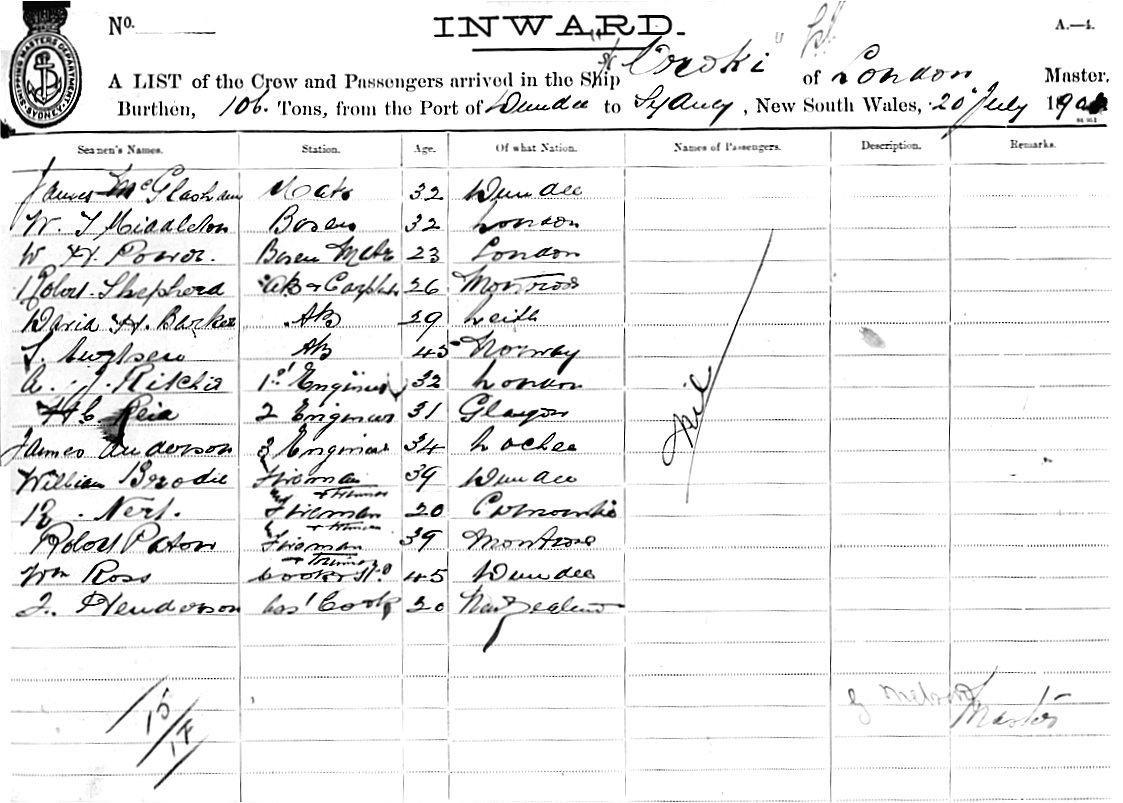 SHIPPING MASTERS DEPARTMENT SYDNEY
No. INWARD. A.—4.
A LIST of the Crew and Passengers arrived in the Ship of London Master,
Burthen, 106 Tons, from the Port of Dundee to Sydney, New South Wales, 20 July 190
Seamen's Names. Station. Age. Of what Nation. Names of Passengers. Description. Remarks.
James McGlashan Mate 32 Dundee
W. T Middleton Bosun 32 London
W H. Power. Bosun Mate 23 London
Robert Shepherd AB & 26 Montrose
David H. Barker AB 29 Leith
AB 45 Norway
A. J. Ritchie 1st Engineer 32 London
H C Reid 2 Engineer 31 Glasgow
James Anderson 3 Engineer 34 Lochee
William Brodie Fireman & Trimmer 39 Dundee
Fireman & Trimmer 20
Robert Paton Fireman & Trimmer 39 Montrose
Wm Ross Cook & Std 45 Dundee
J. Henderson Ass' Cook 20 New Zealand
Nil
G Nelson Master
15/17